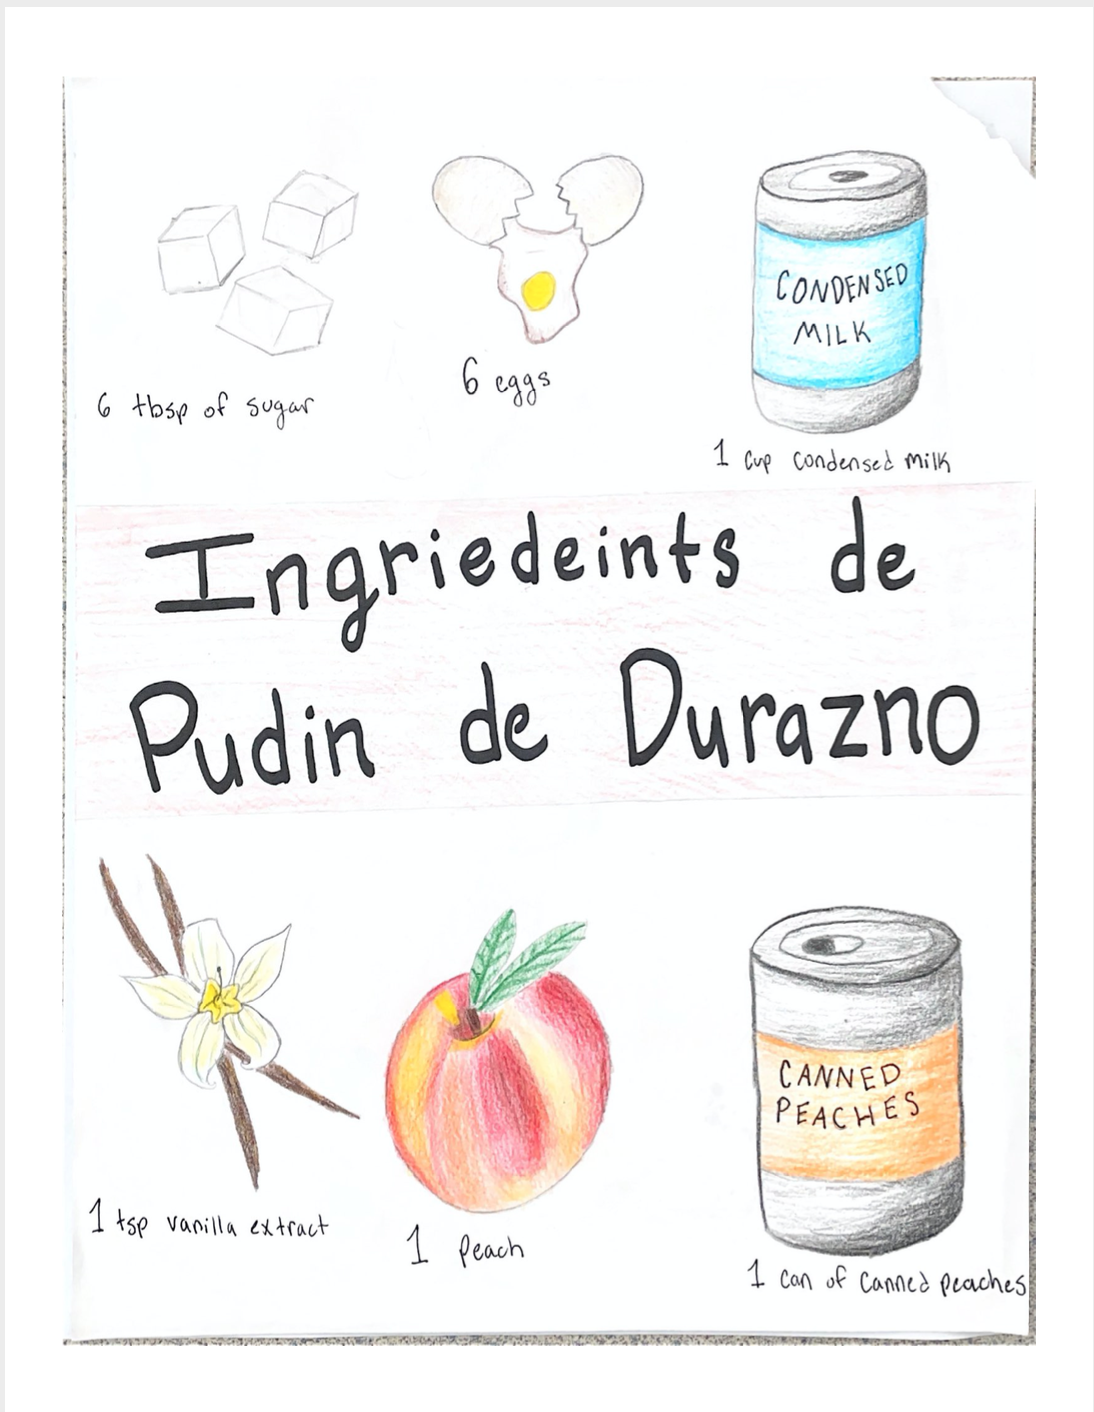 6 tbsp of sugar
6 eggs
CONDENSED
MILK
1 cup condensed milk
Ingriedeints de
Pudin de Durazno
1 tsp vanilla extract
1 peach
CANNED
PEACHES
1 can of canned peaches